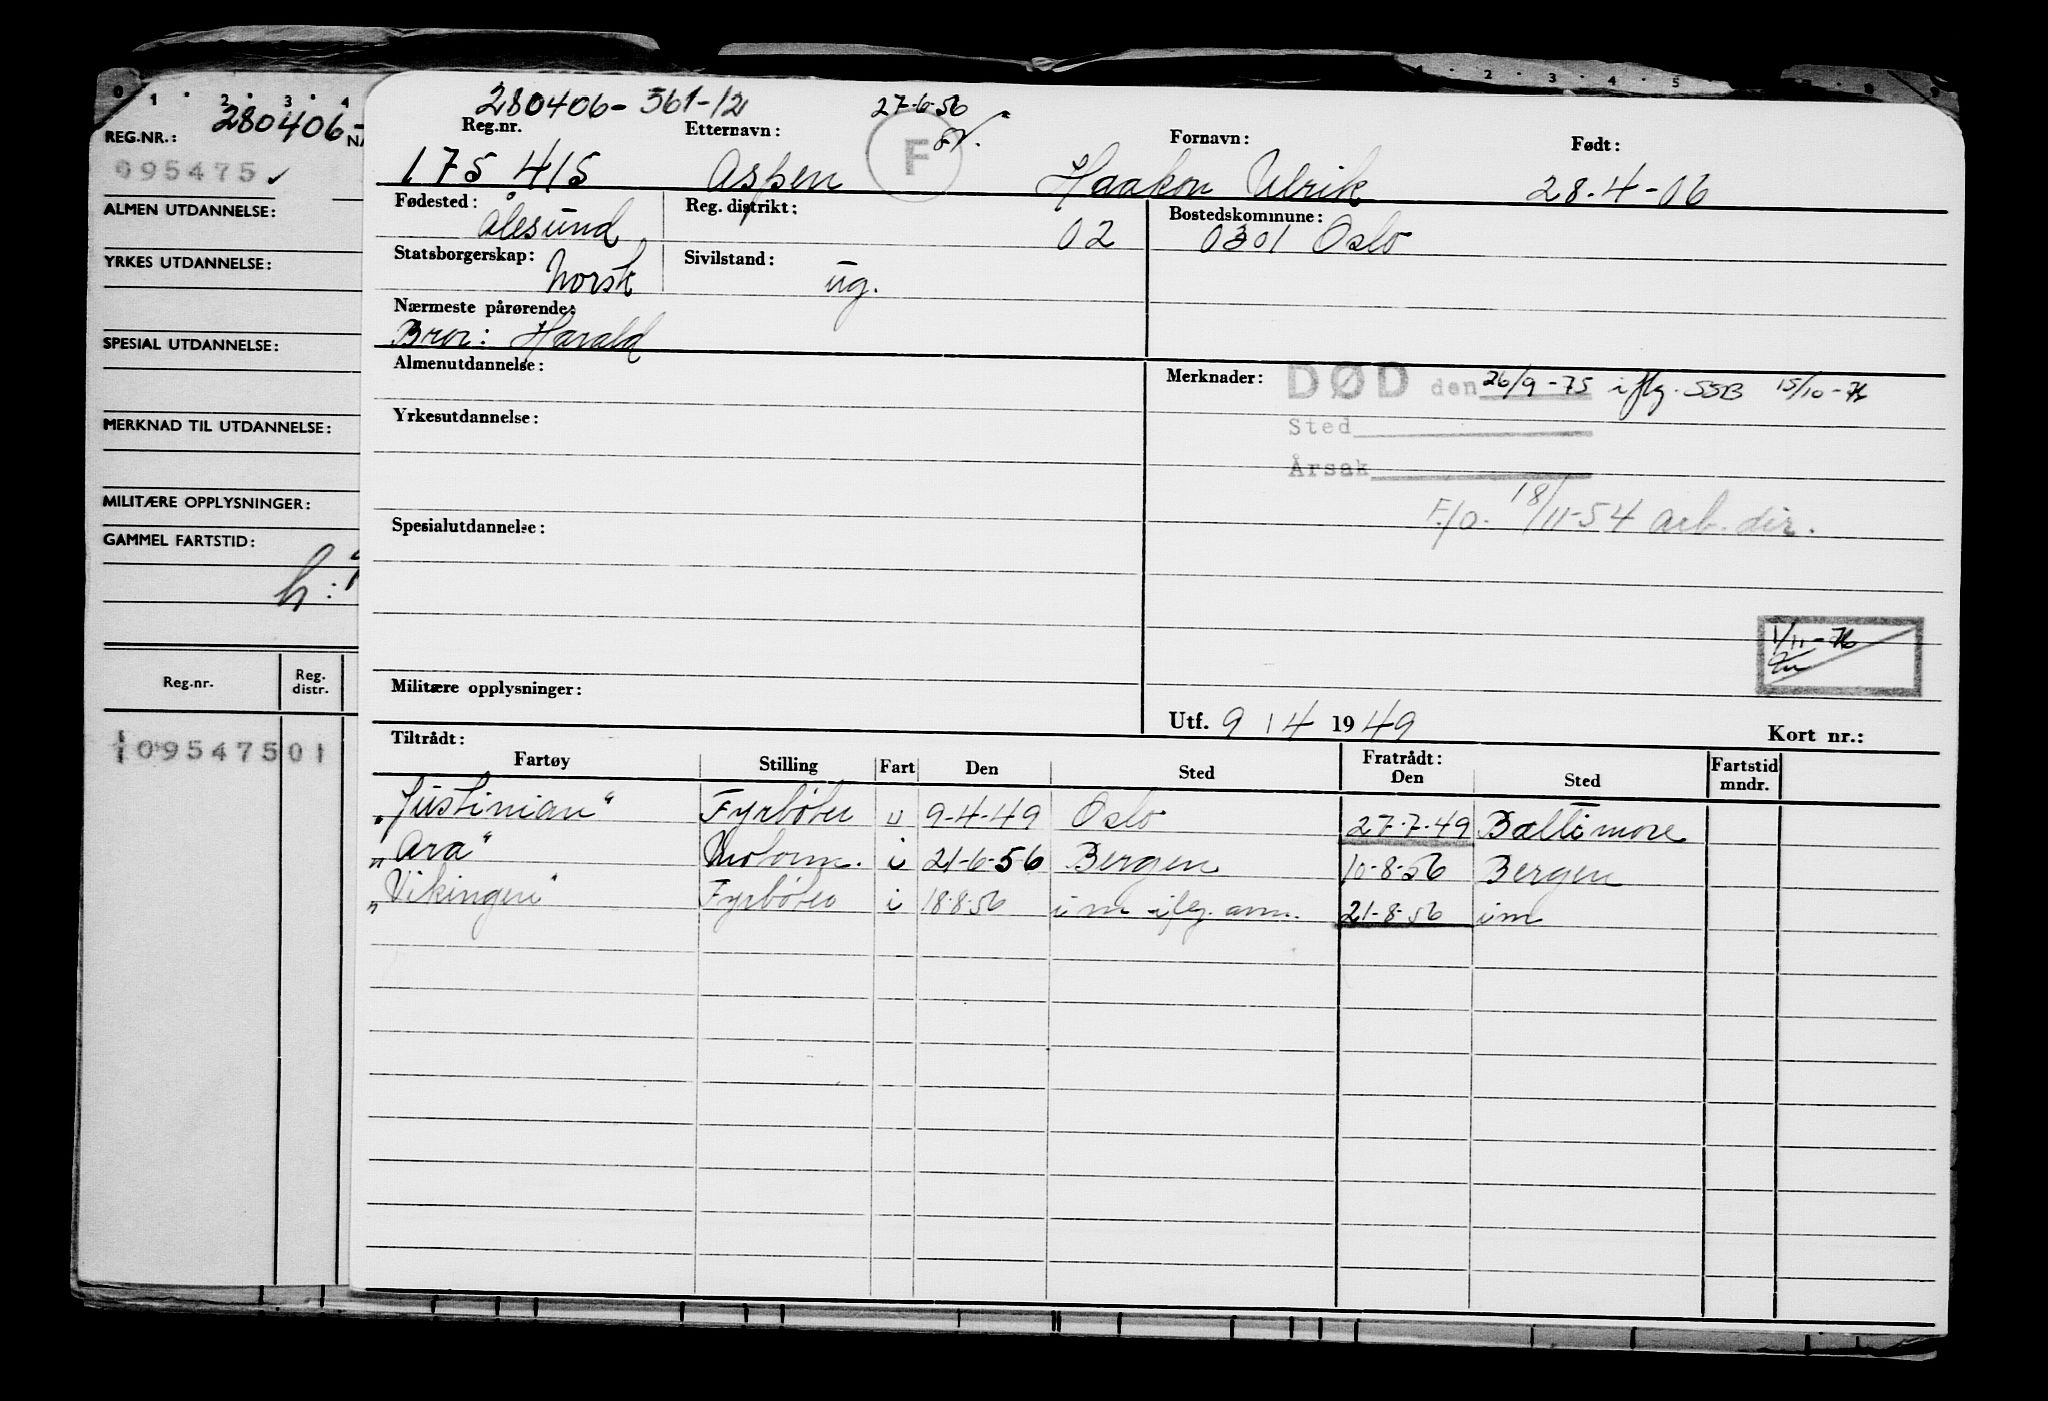 0 1 2 3 4
REG.NR.: 280406-
NA
095475 ✓
ALMEN UTDANNELSE:
YRKES UTDANNELSE:
SPESIAL UTDANNELSE:
MERKNAD TIL UTDANNELSE:
MILITÆRE OPPLYSNINGER:
GAMMEL FARTSTID:
h:
Reg.nr. Reg. distr.
109547501
280406-361-12 27-6-56
Reg.nr. Etternavn: F Fornavn: Født:
175 415 Aspen Haakon Ulrik 28-4-06
Fødested: Ålesund Reg. distrikt: 02 Bostedskommune: 0301 Oslo
Statsborgerskap: Norsk Sivilstand: ug.
Nærmeste pårørende:
Bror: Harald
Almenutdannelse:
Merknader: DØD den 26/9-75 iflg. SSB 15/10-76
Yrkesutdannelse:
Sted
Årsak
F/O. 18/11-54 arb. dir.
Spesialutdannelse:
1/11-76
Militære opplysninger:
Utf. 9/4 1949 Kort nr.:
Tiltrådt: Fratrådt:
Fartøy Stilling Fart Den Sted Den Sted Fartstid mndr.
"Justinian" Fyrbøter u 9-4-49 Oslo 27-7-49 Baltimore
"Ara" Motorm. i 21-6-56 Bergen 10-8-56 Bergen
"Vikingen" Fyrbøter i 18-8-56 i m iflg. anm. 21-8-56 im